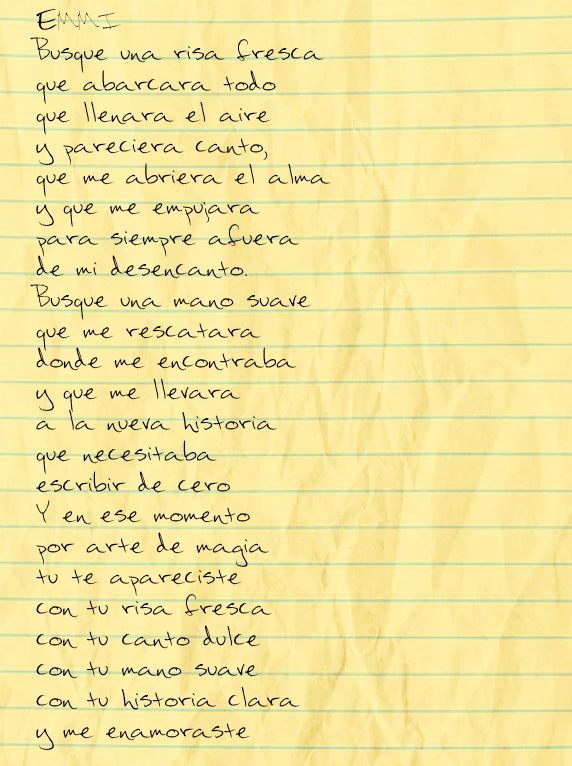 EMMI
Busque una risa fresca
que abarcara todo
que llenara el aire
y pareciera canto,
que me abriera el alma
y que me empujara
para siempre afuera
de mi desencanto.
Busque una mano suave
que me rescatara
donde me encontraba
y que me llevara
a la nueva historia
que necesitaba
escribir de cero
Y en ese momento
por arte de magia
tu te apareciste
con tu risa fresca
con tu canto dulce
con tu mano suave
con tu historia clara
y me enamoraste